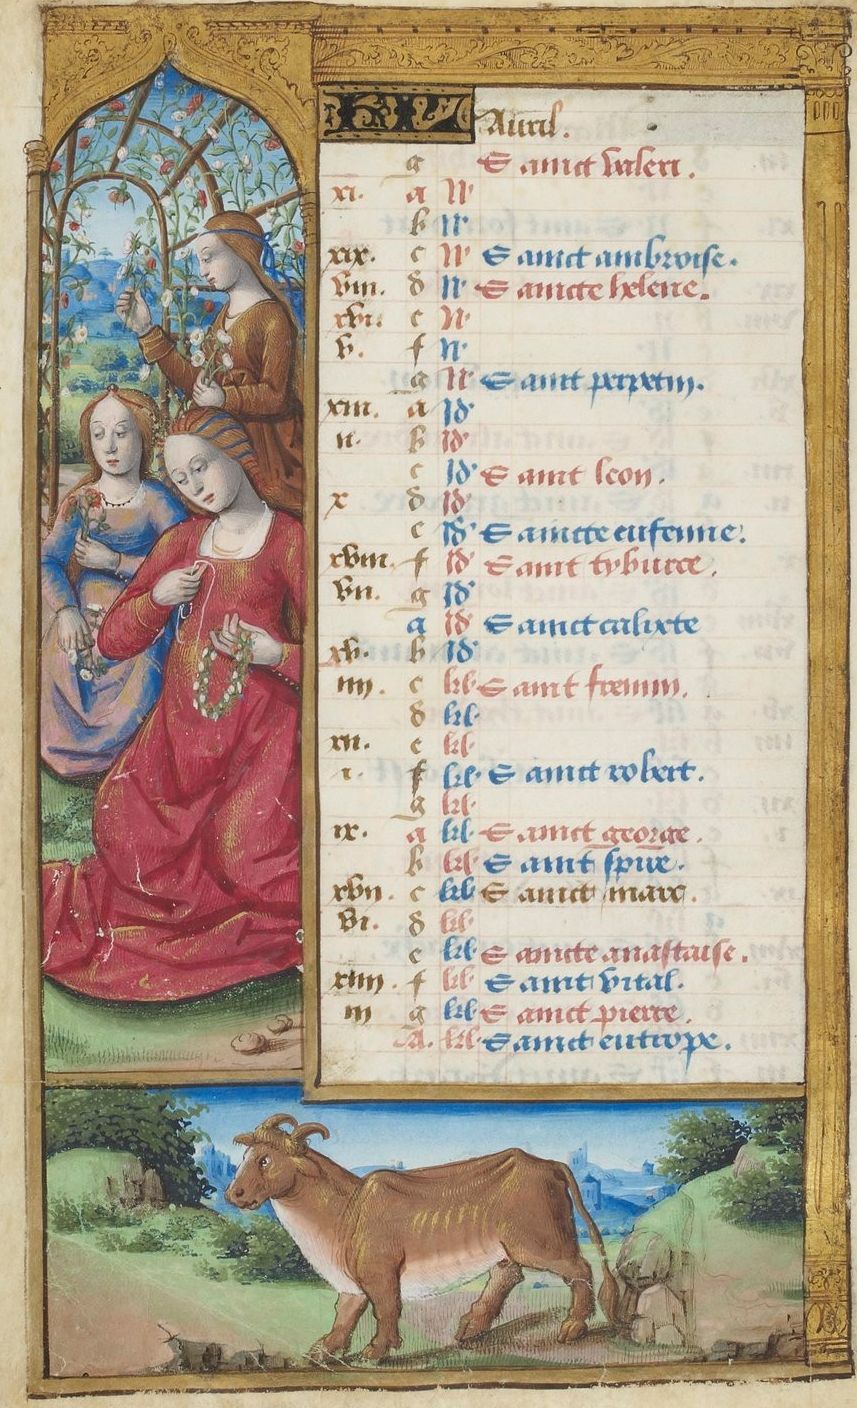 Auril.
g Sainct valeri.
xi. a N
b N
xix. c N Sainct ambroise.
viii. d N Saincte helene.
xvi. e N
v. f N
g N Sainct perpetin.
xiii. a Id
ii. b Id
c Id Saint leon.
x d Id
e Id Saincte eufemie.
xviii. f Id Saint tyburce.
vii. g Id
a Id Sainct calixte
xv. b Id
iiii. c kl Saint fremin.
d kl
xii. e kl
i. f kl Sainct robert.
g kl
ix. a kl Sainct george.
b kl Saint spire.
xvii. c kl Sainct marc.
vi. d kl
e kl Saincte anastaise.
xiiii. f kl Saint vital.
iii g kl Sainct pierre.
A. kl Sainct eutrope.